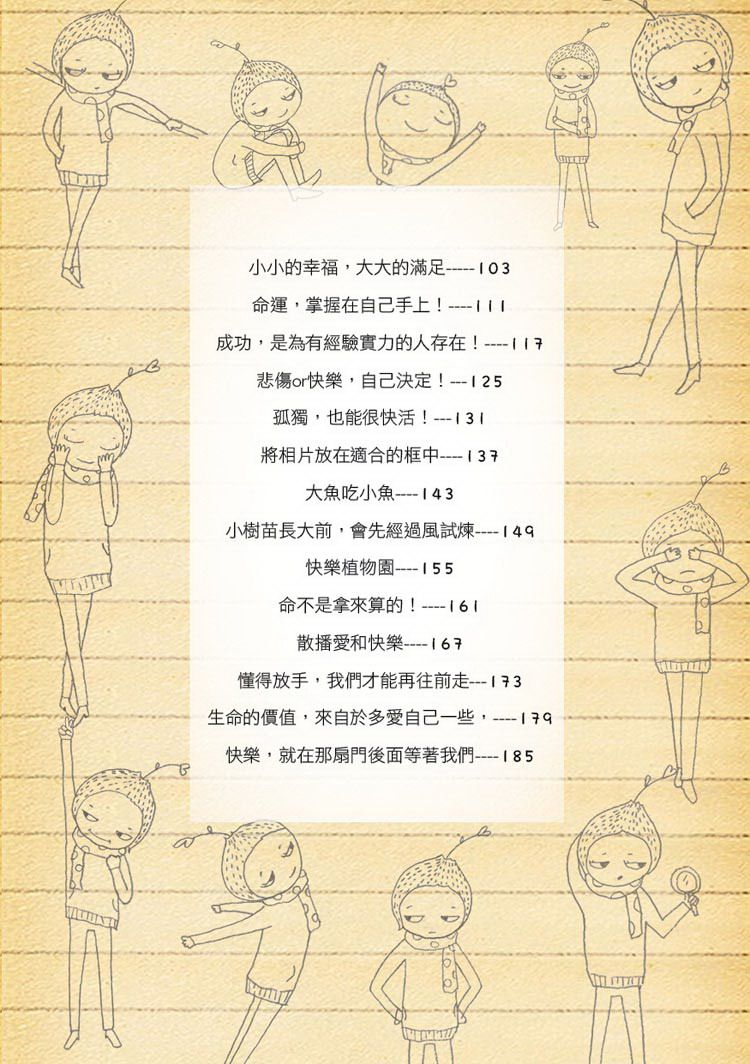 小小的幸福，大大的滿足-----103
命運，掌握在自己手上！----111
成功，是為有經驗實力的人存在！----117
悲傷or快樂，自己決定！---125
孤獨，也能很快活！---131
將相片放在適合的框中----137
大魚吃小魚----143
小樹苗長大前，會先經過風試煉----149
快樂植物園----155
命不是拿來算的！----161
散播愛和快樂----167
懂得放手，我們才能再往前走---173
生命的價值，來自於多愛自己一些，----179
快樂，就在那扇門後面等著我們----185